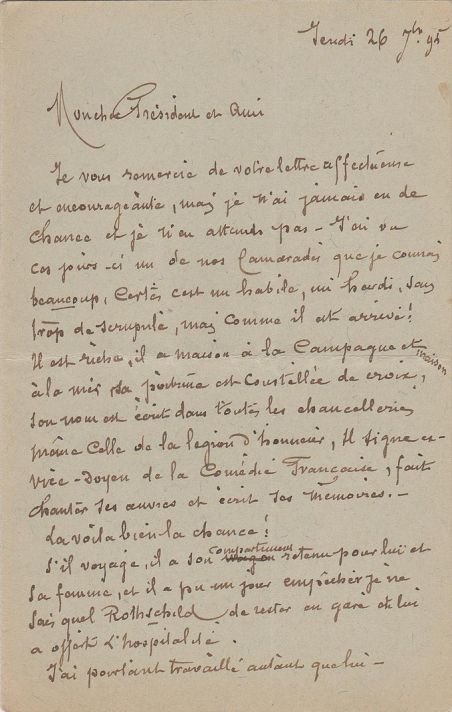 Jeudi 26 7bre 95
Mon cher Président et Ami
Je vous remercie de votre lettre affectueuse
et encourageante, mais je n'ai jamais eu de
chance et je n'en attends pas - J'ai vu
ces jours-ci un de nos Camarades que je connais
beaucoup, Certes c'est un habile, un hardi, sans
trop de scrupule, mais comme il est arrivé!
Il est riche, il a maison à la Campagne et maison
à la mer sa poitrine est constellée de croix,
son nom est écrit dans toutes les chancelleries
même celle de la legion d'honneur, Il signe ex-
vice-Doyen de la Comédie Française, fait
chanter ses œuvres et écrit ses mémoires. -
La voilà bien la chance!
S'il voyage, il a son wagon compartiment retenu pour lui et
sa femme, et il a pu un jour empêcher je ne
sais quel Rothschild de rester en gare et lui
a offert l'hospitalité.
J'ai pourtant travaillé autant que lui -